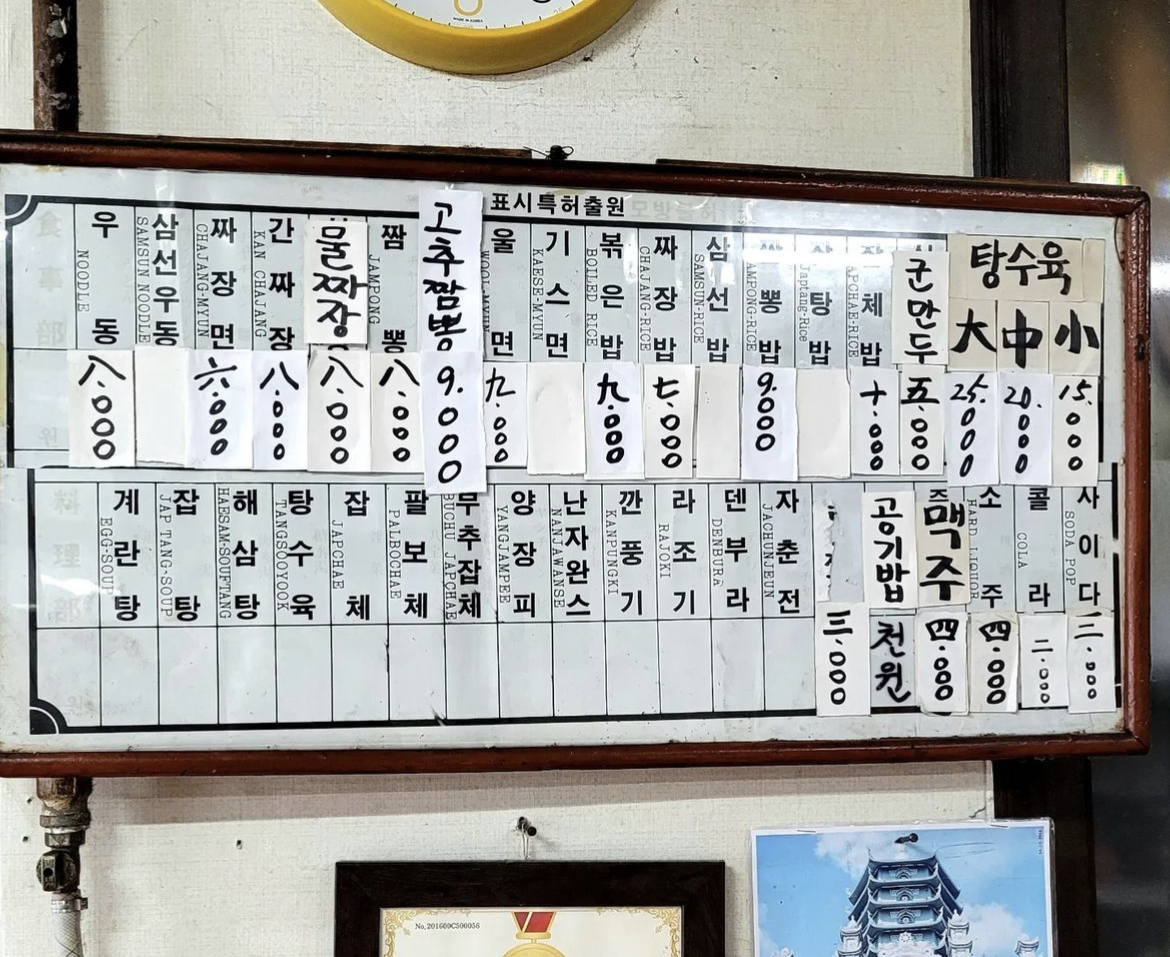 MADE IN KOREA
표시특허출원
우동 NOODLE 八.000
삼선우동 SAMSUN NOODLE
짜장면 CHAJANG-MYUN 六.000
간짜장 KAN CHAJANG 八.000
물짜장 八.000
짬뽕 JAMPONG 八.000
고추짬뽕 9.000
울면 九.000
기스면 KAESE-MYUN
볶은밥 BOILED RICE 九.000
짜장밥 CHAJANG-RICE 七.000
삼선밥 SAMSUN-RICE
뽕밥 9.000
탕밥 Japtang-Rice
체밥 APCHAE-RICE 十.000
군만두 五.000
탕수육
大 25.000
中 20.000
小 15.000
계란탕 EGG-SOUP
잡탕 JAP TANG-SOUP
해삼탕 HAESAM-SOUFTANG
탕수육 TANGSOOYOOK
잡체 JAPCHAE
팔보체 PALBOCHAE
부추잡체 BUCHU JAPCHAE
양장피 YANGJAMPEE
난자완스 NANJAWANSE
깐풍기 KANPUNGKI
라조기 RAJOKI
덴부라 DENBURA
자춘전 JACHUNJEUN
三.000
공기밥 천원
맥주 四.000
소주 HARD LIQUOR 四.000
콜라 COLA 二.000
사이다 SODA POP 二.000
No, 201600C500056